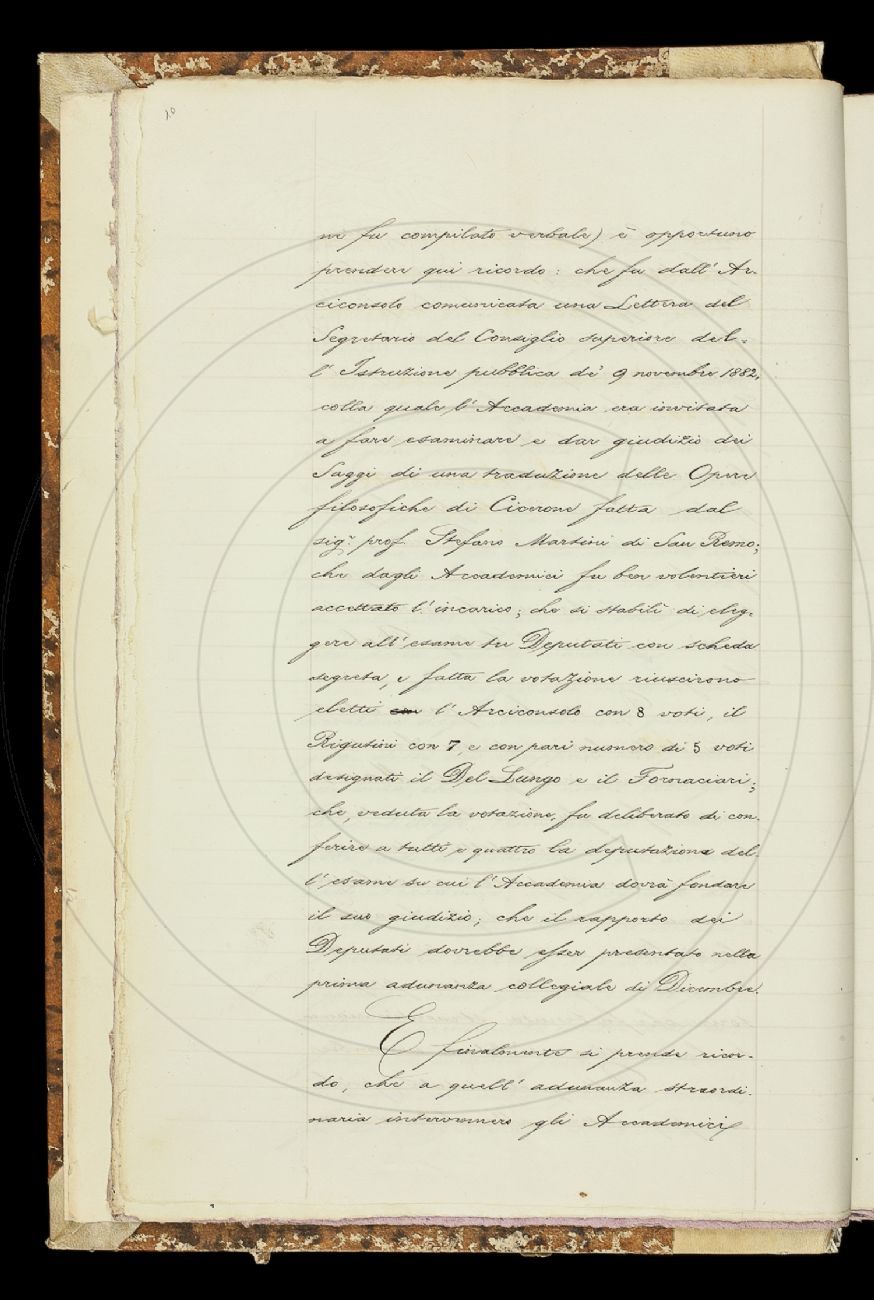 10
ne fu compilato verbale) è opportuno
prendere qui ricordo: che fu dall' Ar-
ciconsolo comunicata una Lettera del
Segretario del Consiglio superiore del-
l' Istruzione pubblica de' 9 novembre 1882,
colla quale l' Accademia era invitata
a fare esaminare e dar giudizio dei
Saggi di una traduzione delle Opere
filosofiche di Cicerone fatta dal
sig.r prof. Stefano Martini di San Remo;
che dagli Accademici fu ben volentieri
accettato l' incarico; che si stabilì di eleg-
gere all' esame tre Deputati con scheda
segreta, e fatta la votazione riuscirono
eletti con l' Arciconsolo con 8 voti, il
Rigutini con 7, e con pari numero di 5 voti
designati il Del Lungo e il Fornaciari;
che, veduta la votazione, fu deliberato di con-
ferire a tutti e quattro la deputazione del-
l' esame su cui l' Accademia dovrà fondare
il suo giudizio; che il rapporto dei
Deputati dovrebbe esser presentato nella
prima adunanza collegiale di Dicembre.
E finalmente si prende ricor-
do, che a quell' adunanza straordi-
naria intervennero gli Accademici